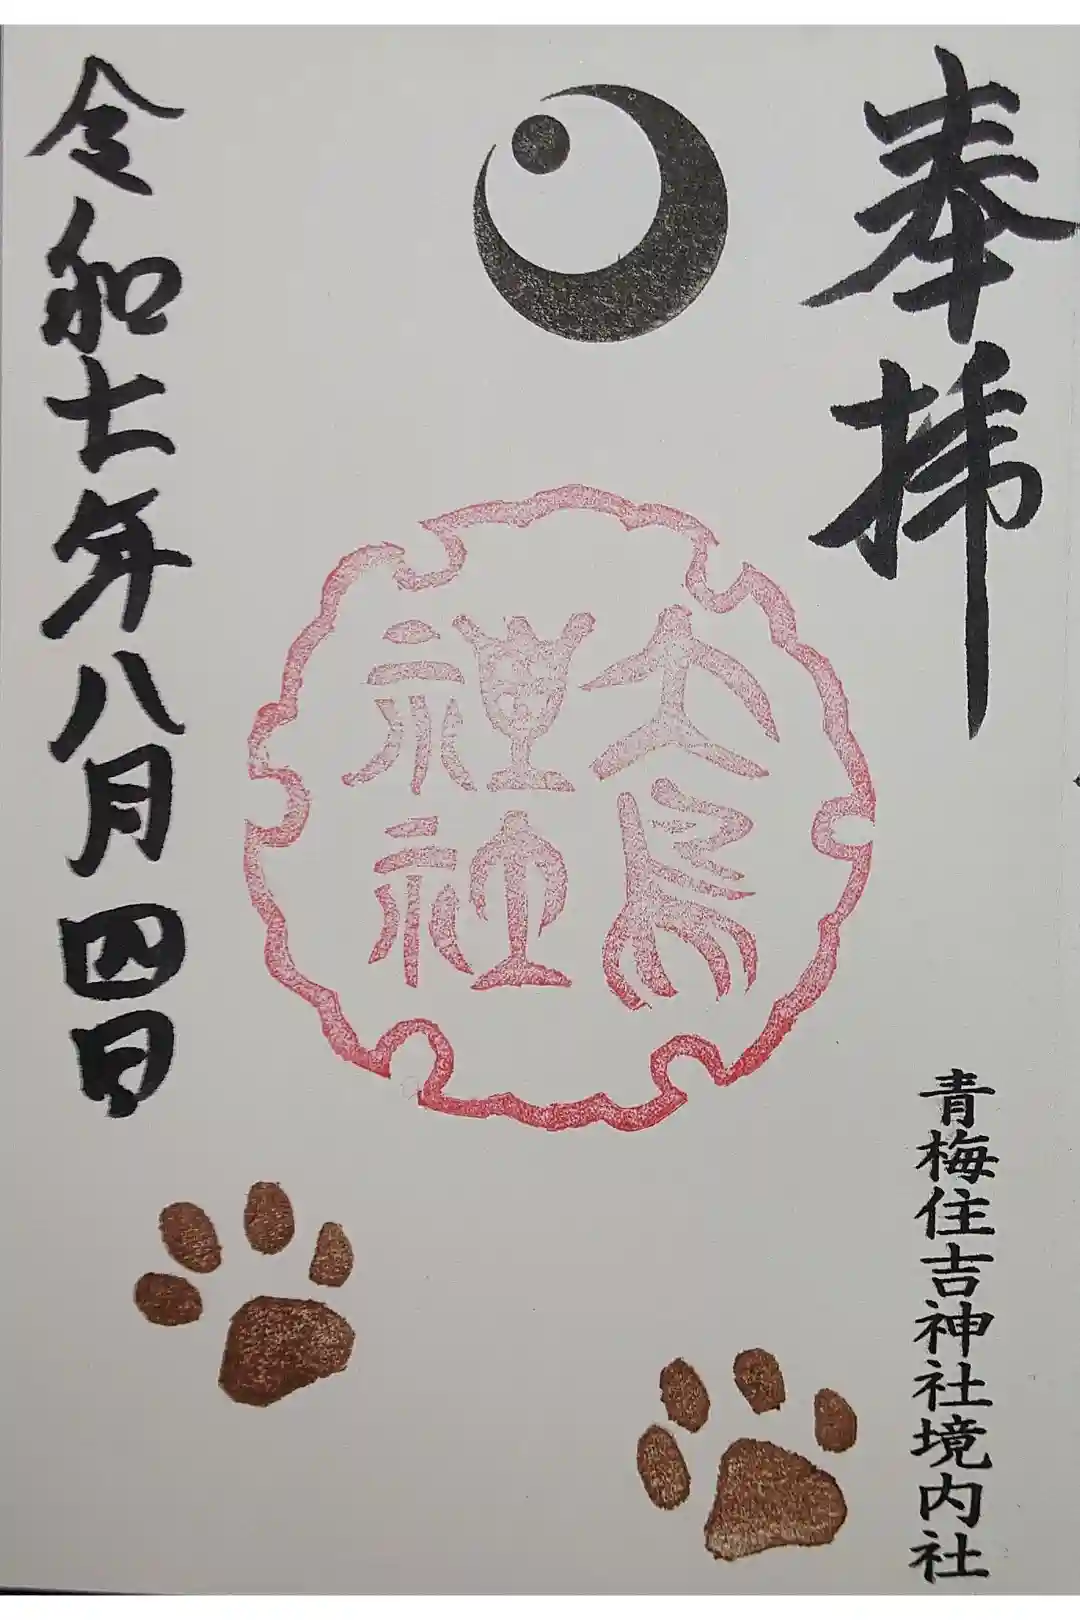 奉拝
青梅住吉神社境内社
大鳥
神社
令和七年八月四日